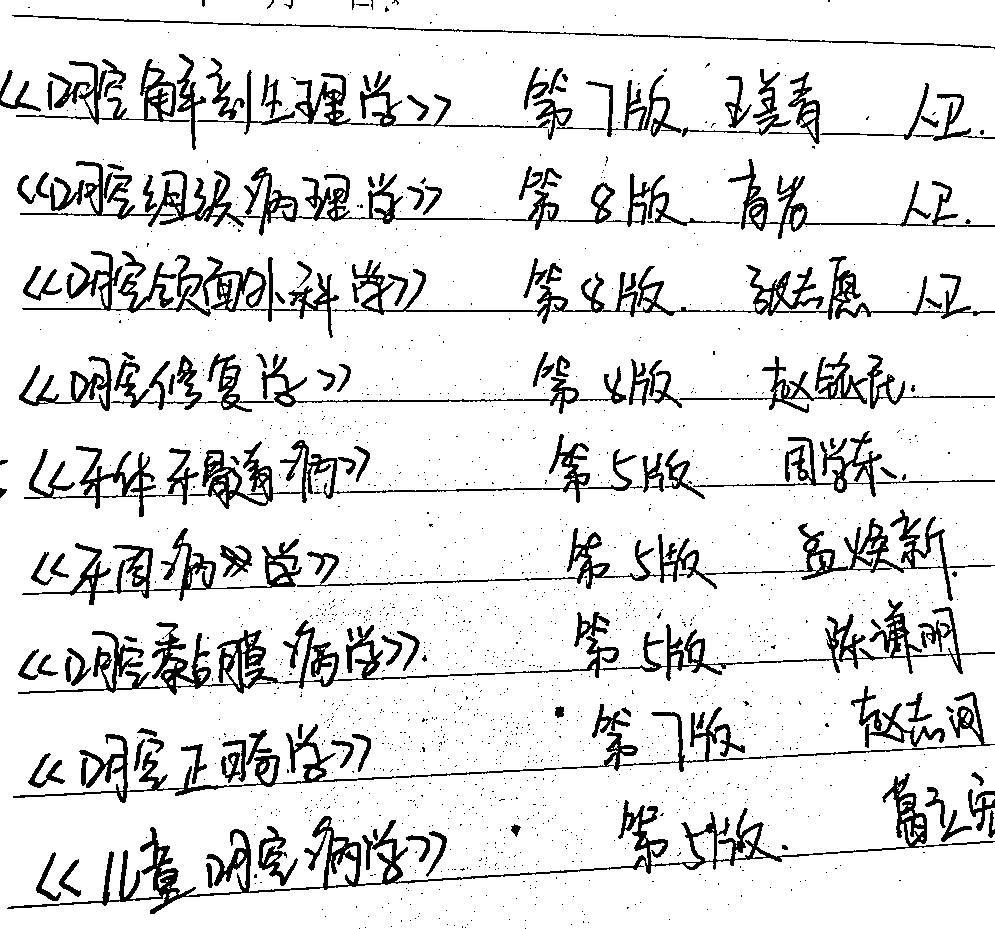 《口腔解剖生理学》 第7版. 王美青 人卫.
《口腔组织病理学》 第8版. 高岩 人卫.
《口腔颌面外科学》 第8版. 张志愿 人卫.
《口腔修复学》 第8版 赵铱民.
《牙体牙髓病》 第5版 周学东.
《牙周病学》 第5版 孟焕新.
《口腔黏膜病学》. 第5版. 陈谦明
《口腔正畸学》 第7版 赵志河
《儿童口腔病学》 第5版. 葛立宏